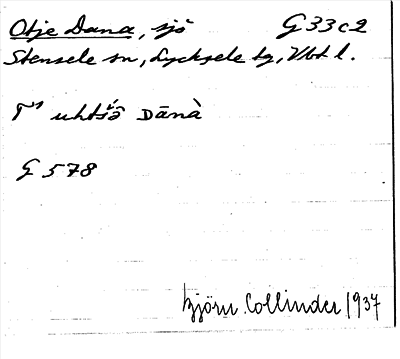 Otje Dana, sjö G 33 c 2
Stensele sn, Lycksele tg, Vbt l.
uhtsō Dānà
G 578
Björn Collinder 1937